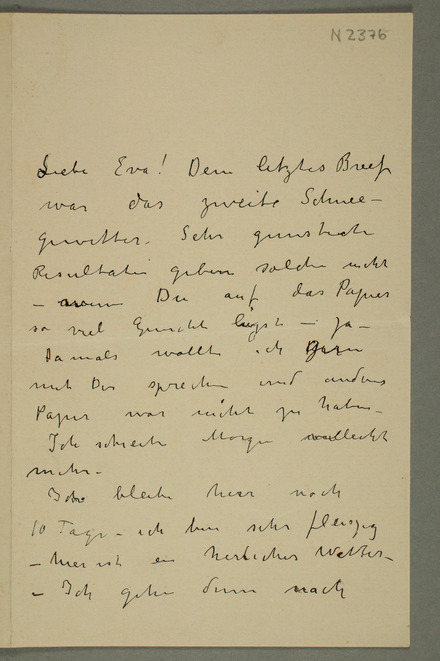 N 2376
Liebe Eva! Dein letztes Brief
war das zweite Schnee-
gewitter. Sehr gunstich
Resultaten geben solche nicht
- wenn Du auf das Papier
so viel Gewicht legst - ja -
Damals wollte ich gern
mit Dir sprechen und anderes
Papier war nicht zu haben -
Ich schreibe Morgen vielleicht
mehr -
Ich bleibe hier noch
10 Tage - ich bin sehr fleiszig
- hier ist ein herliches Wetter -
- Ich gehe dann nach